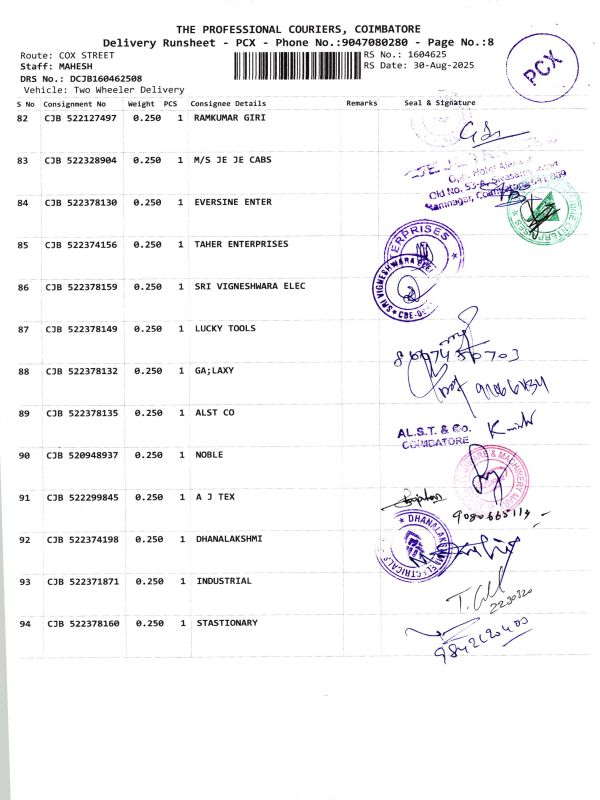 THE PROFESSIONAL COURIERS, COIMBATORE
Delivery Runsheet - PCX - Phone No.:9047080280 - Page No.:8
Route: COX STREET RS No.: 1604625
Staff: MAHESH RS Date: 30-Aug-2025
DRS No.: DCJB160462508
Vehicle: Two Wheeler Delivery
PCX
S No Consignment No Weight PCS Consignee Details Remarks Seal & Signature
82 CJB 522127497 0.250 1 RAMKUMAR GIRI
83 CJB 522328904 0.250 1 M/S JE JE CABS
Old No. 53-A, 
Ramnagar, Coimbatore-641 009
84 CJB 522378130 0.250 1 EVERSINE ENTER
85 CJB 522374156 0.250 1 TAHER ENTERPRISES
86 CJB 522378159 0.250 1 SRI VIGNESHWARA ELEC
SRI VIGNESHWARA
87 CJB 522378149 0.250 1 LUCKY TOOLS
88 CJB 522378132 0.250 1 GA;LAXY
89 CJB 522378135 0.250 1 ALST CO
AL.S.T. & Co.
COIMBATORE
90 CJB 520948937 0.250 1 NOBLE
91 CJB 522299845 0.250 1 A J TEX
9080665114
92 CJB 522374198 0.250 1 DHANALAKSHMI
DHANALAKSHMI ELECTRICALS
93 CJB 522371871 0.250 1 INDUSTRIAL
94 CJB 522378160 0.250 1 STASTIONARY